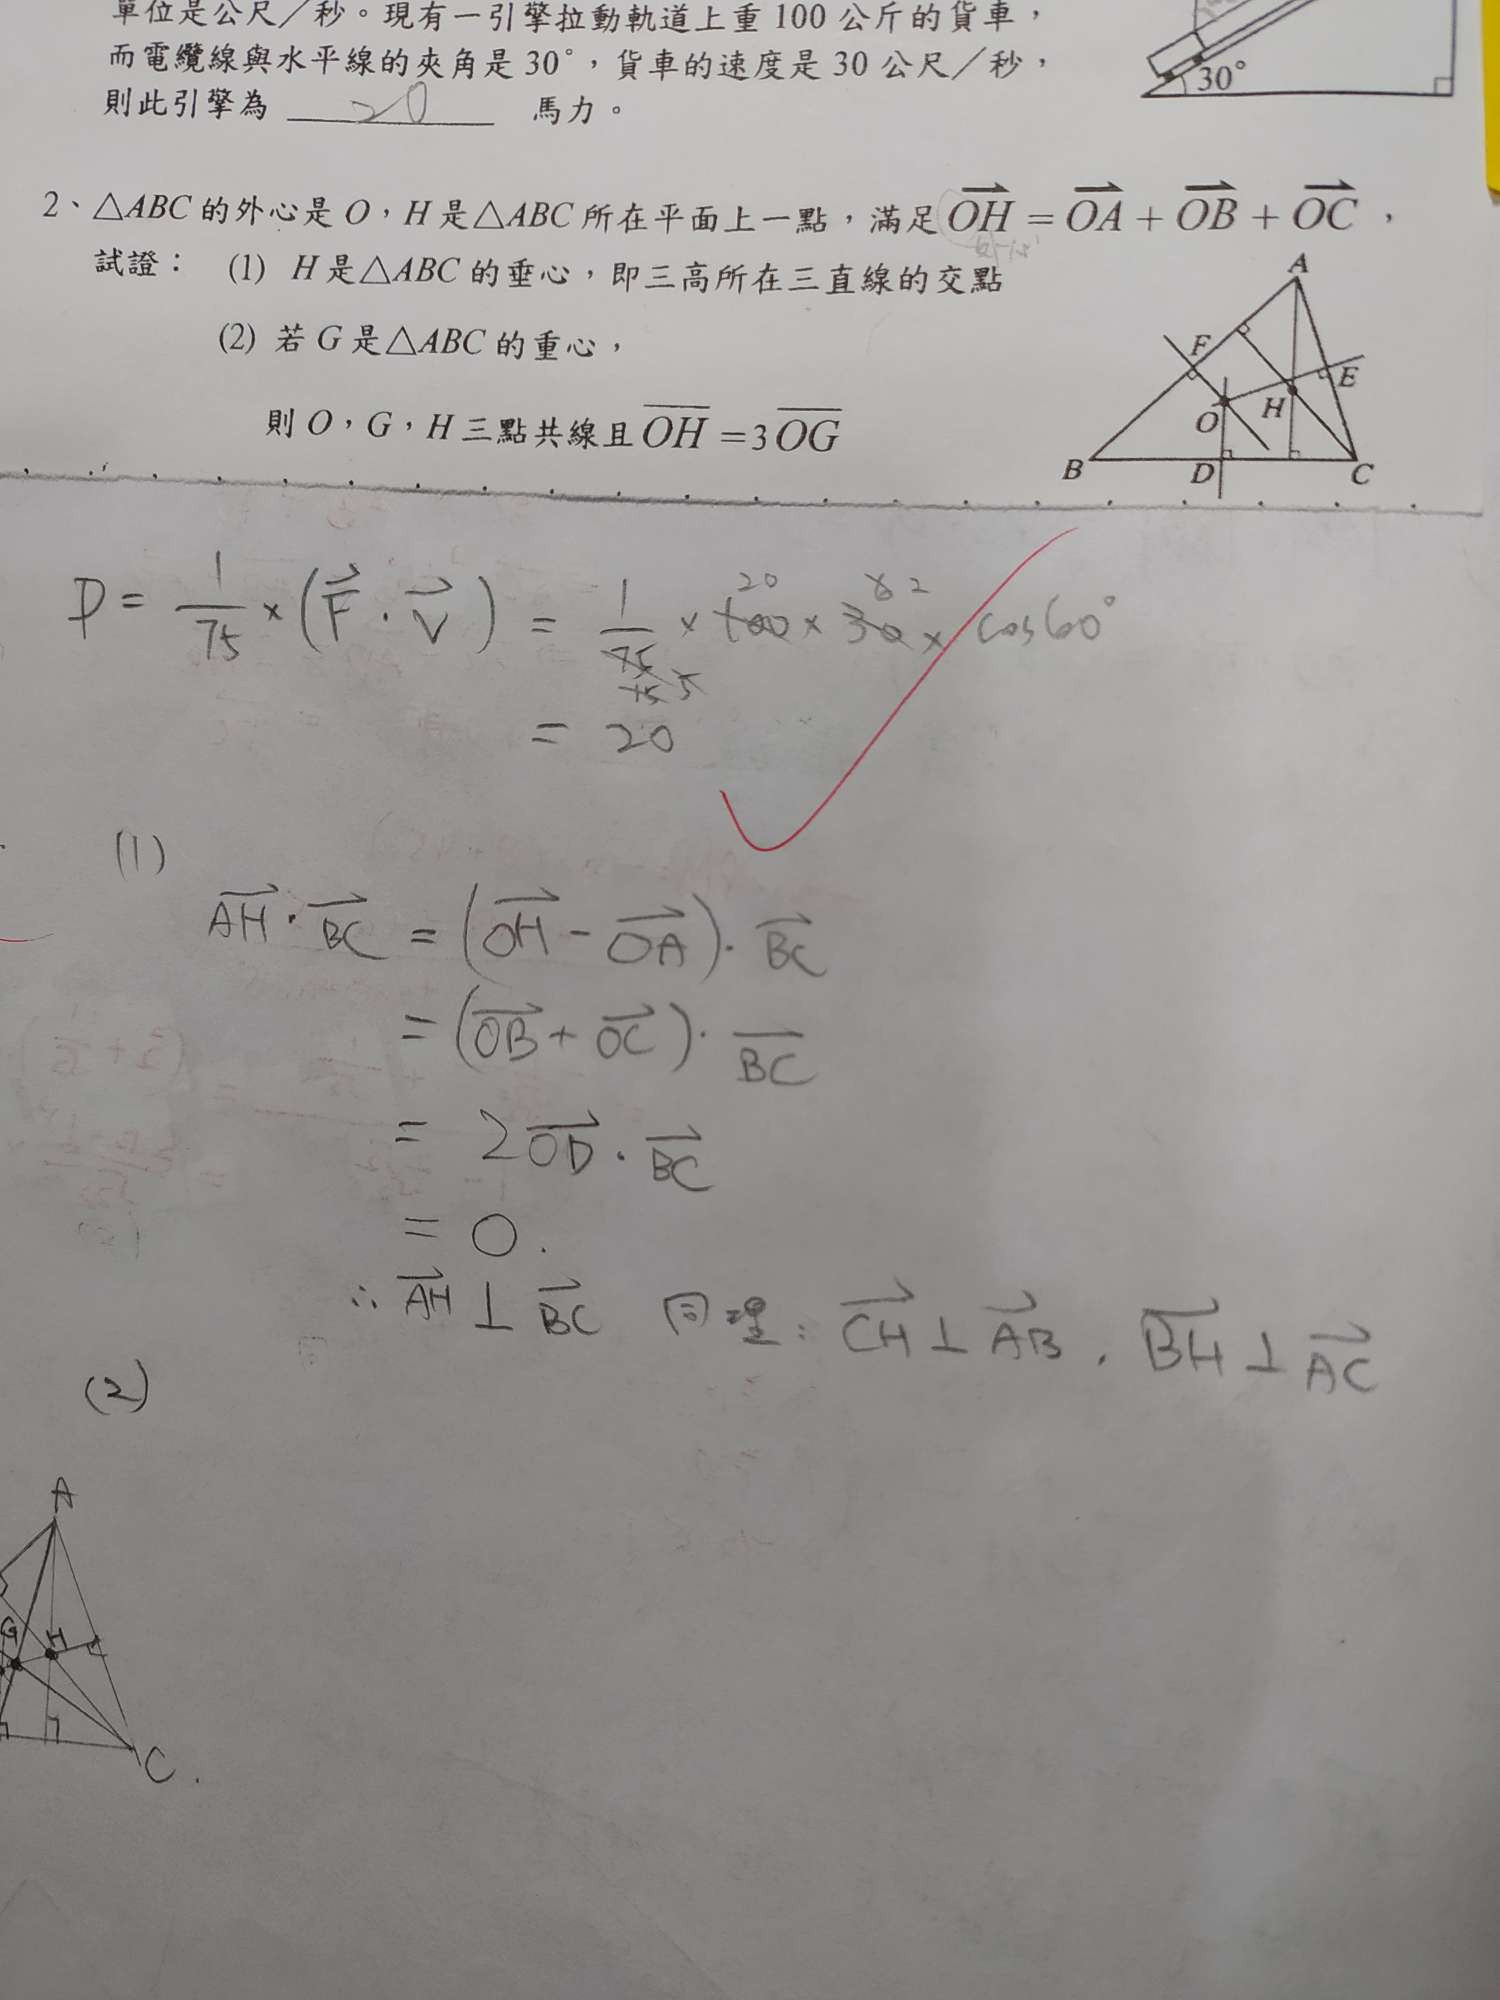 單位是公尺／秒。現有一引擎拉動軌道上重100公斤的貨車，
而電纜線與水平線的夾角是30°，貨車的速度是30公尺／秒，
則此引擎為 20 馬力。
30°
2、△ABC的外心是O，H是△ABC所在平面上一點，滿足\overrightarrow{OH}=\overrightarrow{OA}+\overrightarrow{OB}+\overrightarrow{OC}，
試證： (1) H是△ABC的垂心，即三高所在三直線的交點
(2) 若G是△ABC的重心，
則O，G，H三點共線且\overline{OH}=3\overline{OG}
A
F
E
O
H
B
D
C
P = \frac{1}{75} × (\vec{F} · \vec{V}) = \frac{1}{75} × 100 × 30 × cos60°
20
2
15 5
= 20
(1)
\overrightarrow{AH} · \overrightarrow{BC} = (\overrightarrow{OH} - \overrightarrow{OA}) · \overrightarrow{BC}
= (\overrightarrow{OB} + \overrightarrow{OC}) · \overrightarrow{BC}
= 2\overrightarrow{OD} · \overrightarrow{BC}
= 0.
∴ \overrightarrow{AH} ⊥ \overrightarrow{BC} 同理：\overrightarrow{CH} ⊥ \overrightarrow{AB}，\overrightarrow{BH} ⊥ \overrightarrow{AC}
(2)
A
G
H
C.